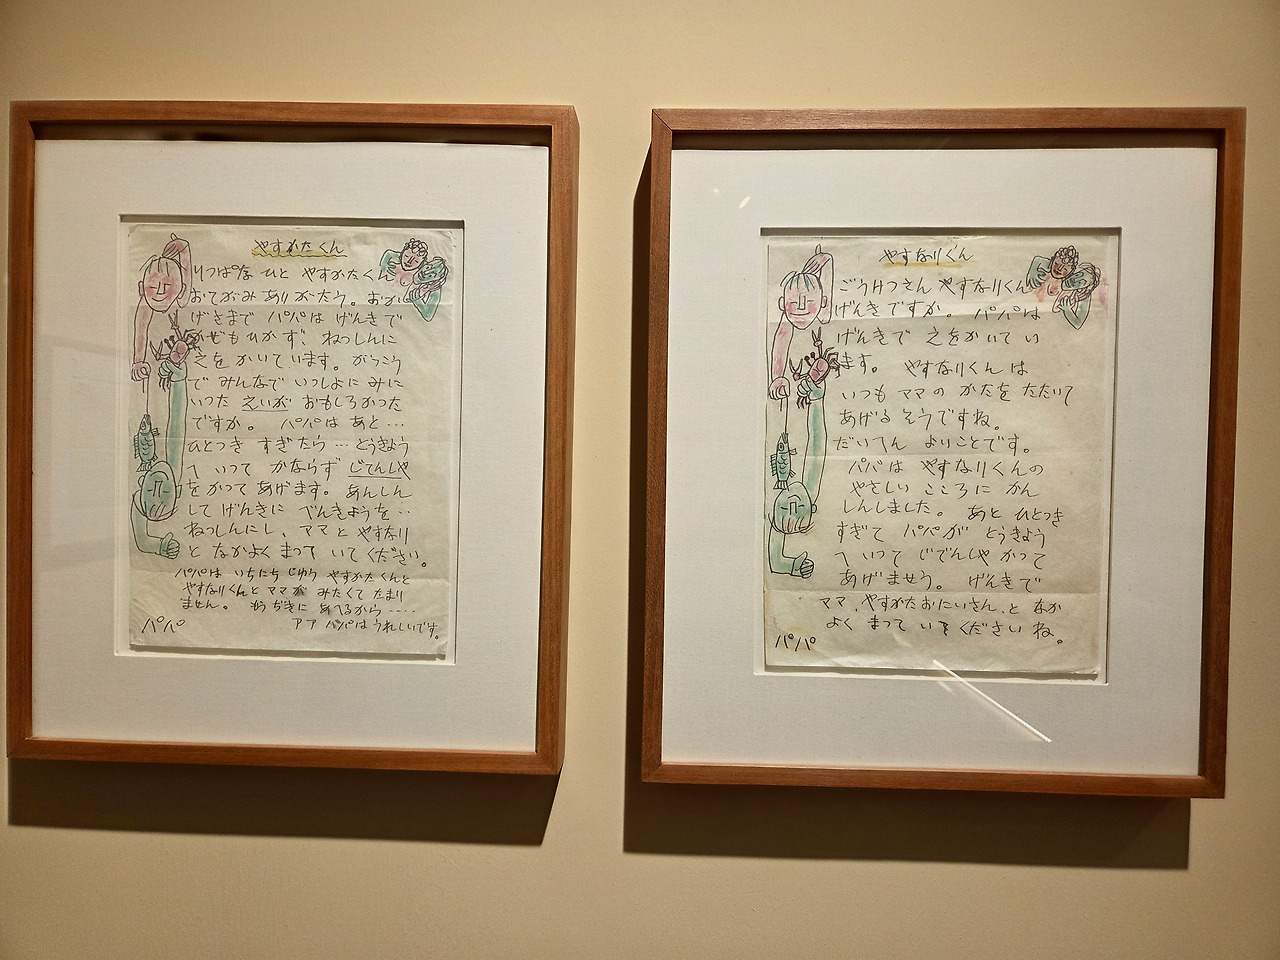 やすかたくん
りっぱな ひと やすかたくん
おてがみ ありがたう。おか
げさまで パパは げんきで
かぜも ひかず、ねっしんに
えを かいて います。がっこう
で みんなで いっしょに みに
いった えいが おもしろかった
ですか。 パパは あと…
ひとつき すぎたら… とうきょう
へ いって かならず じてんしゃ
を かって あげます。あんしん
して げんきに べんきょうを‥
ねっしんにし、ママと やすなり
と なかよく まって いて ください。
パパは いちにち じゅう やすかたくんと
やすなりくんと ママが みたくて たまり
ません。 もう ぢきに あへるから‥‥‥
アア パパは うれしいです。
パパ
やすなりくん
ごうけつさん やすなりくん
げんきですか。 パパは
げんきで えをかいて い
ます。 やすなりくんは
いつも ママの かたを たたいて
あげる そうですね。
だいへん よいことです。
パパは やすなりくんの
やさしい こころに かん
しんしました。 あと ひとつき
すぎて パパが とうきょう
へ いって じでんしゃ かって
あげませう。 げんきで
ママ、やすかたおにいさん、と なか
よく まって いてくださいね。
パパ